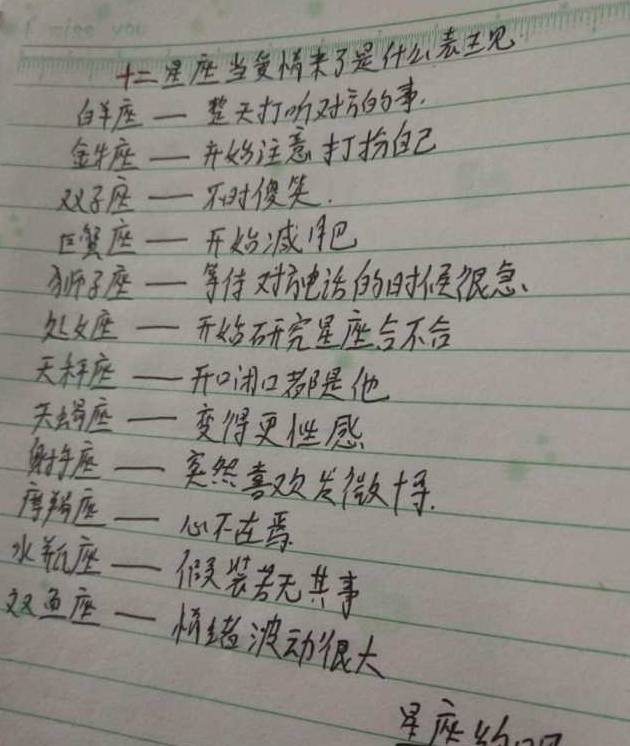 十二星座当爱情来了是什么表现
白羊座 — 整天打听对方的事.
金牛座 — 开始注意打扮自己
双子座 — 不时傻笑.
巨蟹座 — 开始减肥
狮子座 — 等待对方电话的时候很急.
处女座 — 开始研究星座合不合
天秤座 — 开口闭口都是他
天蝎座 — 变得更性感
射手座 — 突然喜欢发微博.
摩羯座 — 心不在焉.
水瓶座 — 假装若无其事
双鱼座 — 情绪波动很大
星座